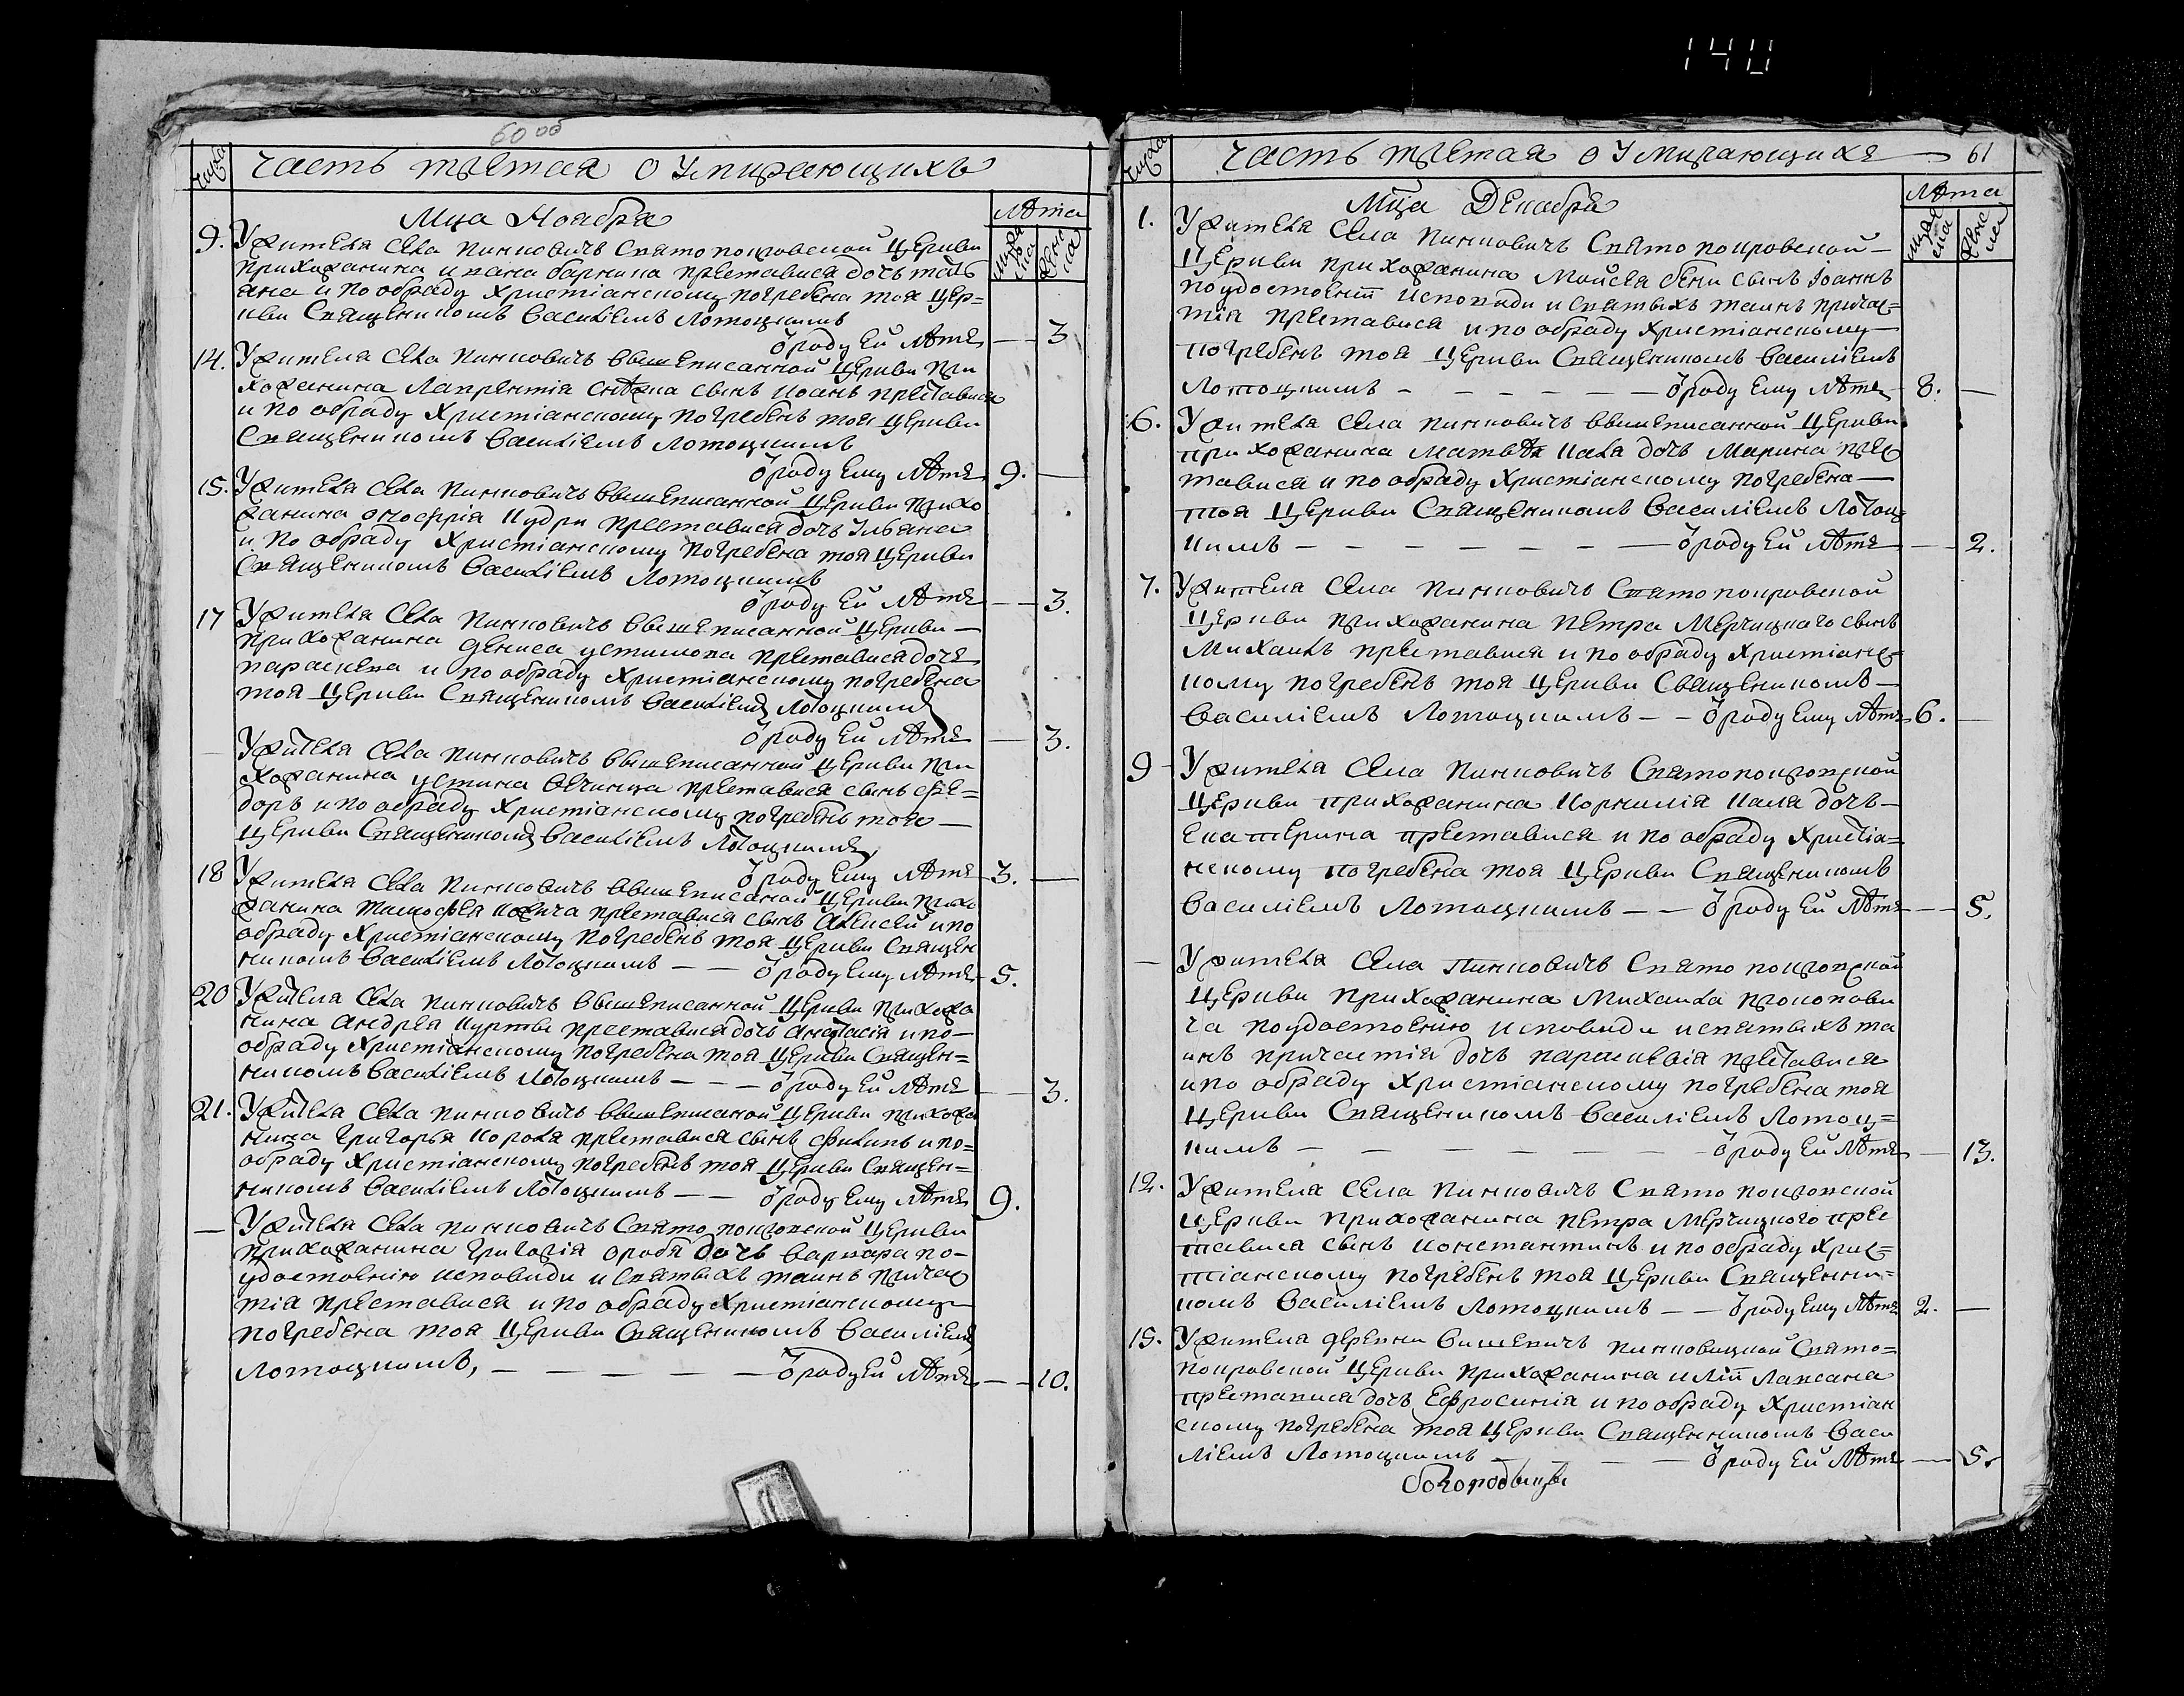 140
60 об
Числа
часть третая о Умирающихъ
Лѣта
Мца Ноября
9. У жителя села Пинковичъ Святопокровской церкви
прихожанина Ивана барнина преставися дочь тать
ана и по обряду христіанскому погребена тоя цер=
кви Священикомъ Василіемъ Лотоцкимъ
ѿ роду ей лѣтъ — 3
14. У жителя села Пинковичъ вышеписанной церкви при
хожанина Лаврентія сын Иоанъ преставися
и по обряду христіанскому погребенъ тоя церкви
Священикомъ Василіемъ Лотоцкимъ
ѿ роду ему лѣтъ 9. —
15. У жителя села Пинковичъ вышеписанной церкви прихо
жанина Онофрія Кудри преставися дочь Ульяна
и по обряду христіанскому погребена тоя церкви
Священикомъ Василіемъ Лотоцкимъ
ѿ роду ей лѣтъ — 3.
17 У жителя села Пинковичъ вышеписанной церкви —
прихожанина Дениса устимова преставися дочъ
параскева и по обряду христіанскому погребена
тоя церкви Священикомъ Василіемъ Лотоцкимъ
ѿ роду ей лѣтъ — 3.
— У жителя села Пинковичъ вышеписанной церкви при
хожанина устина преставися сынъ фе=
доръ и по обряду христіанскому погребенъ тоя —
церкви Священикомъ Василіемъ Лотоцкимъ
ѿ роду ему лѣтъ 3. —
18 У жителя села Пинковичъ вышеписаной церкви прихо
жанина Тимофея преставися сынъ Алексей и по
обряду христіанскому погребенъ тоя церкви Священ
никомъ Василіемъ Лотоцкимъ — — ѿ роду ему лѣтъ 5.
20 У жителя села Пинковичъ вышеписанной церкви прихожа
нина Андрея Курты преставися дочь Анастасія и по —
обряду христіанскому погребена тоя церкви Священ=
никомъ Василіемъ Лотоцкимъ — — — ѿ роду ей лѣтъ — 3.
21. У жителя села Пинковичъ вышеписаной церкви прихожа
нина Григорья Короля преставися сынъ филипъ и по=
обряду христіанскому погребенъ тоя церкви Священ=
никомъ Василіемъ Лотоцкимъ — — ѿ роду ему лѣтъ 9.
— У жителя села Пинковичъ Святопокровской церкви
прихожанина Григорія дочь варвара по —
удостоенію исповиди и святыхъ таинъ причас
тія преставися и по обряду христіанскому
погребена тоя церкви Священикомъ Василіемъ
Лотоцкимъ, — — — — — ѿ роду ей лѣтъ — 10.
Числа
часть третая о Умирающихъ — 61
Лѣта
Мца Декабря
1. У жителя села Пинковичъ Святопокровской —
церкви прихожанина Мойсея бени сынъ Іоаннъ
по удостоеніи исповиди и святыхъ таинъ причас=
тія преставися и по обряду христіанскому —
погребенъ тоя церкви Священикомъ Василіемъ
Лотоцкимъ — — — — — — ѿ роду ему лѣтъ 8. —
6. У жителя села Пинковичъ вышеписанной церкви
прихожанина Матвѣя Каля дочь Марина прес
тавися и по обряду христіанскому погребена —
тоя церкви Священикомъ Василіемъ Лотоц
кимъ — — — — — — ѿ роду ей лѣтъ — 2.
7. У жителя села Пинковичъ Святопокровской
церкви прихожанина Петра Мерчицкаго сынъ
Михаилъ преставися и по обряду христіанс=
кому погребенъ тоя церкви Священикомъ —
Василіемъ Лотоцкимъ — — ѿ роду ему лѣтъ 6. —
9 — У жителя села Пинковичъ Святопокровской
церкви прихожанина Корнилія Каля дочь —
Екатерина преставися и по обряду христіа=
нскому погребена тоя церкви Священикомъ
Василіемъ Лотоцкимъ — — ѿ роду ей лѣтъ — 5.
— У жителя села Пинковичъ Святопокровской
церкви прихожанина Михаила прокопови
ча по удостоенію исповиди и святыхъ та
инъ причастія дочь параскевія преставися
и по обряду христіанскому погребена тоя
церкви Священикомъ Василіемъ Лотоц=
кимъ — — — — — — ѿ роду ей лѣтъ — 13.
12. У жителя села Пинковичъ Святопокровской
церкви прихожанина Петра Мерчицкого прес
тавися сынъ Константинъ и по обряду хрис=
тіанскому погребенъ тоя церкви Священни=
комъ Василіемъ Лотоцкимъ — — ѿ роду ему лѣтъ 2. —
15. У жителя деревни Вишевичъ Пинковицкой Свято=
покровской церкви прихожанина Иліи Лапсана
преставися дочь Ефросинія и по обряду христіан
скому погребена тоя церкви Священникомъ Васи
ліемъ Лотоцкимъ — — — ѿ роду ей лѣтъ — 5.